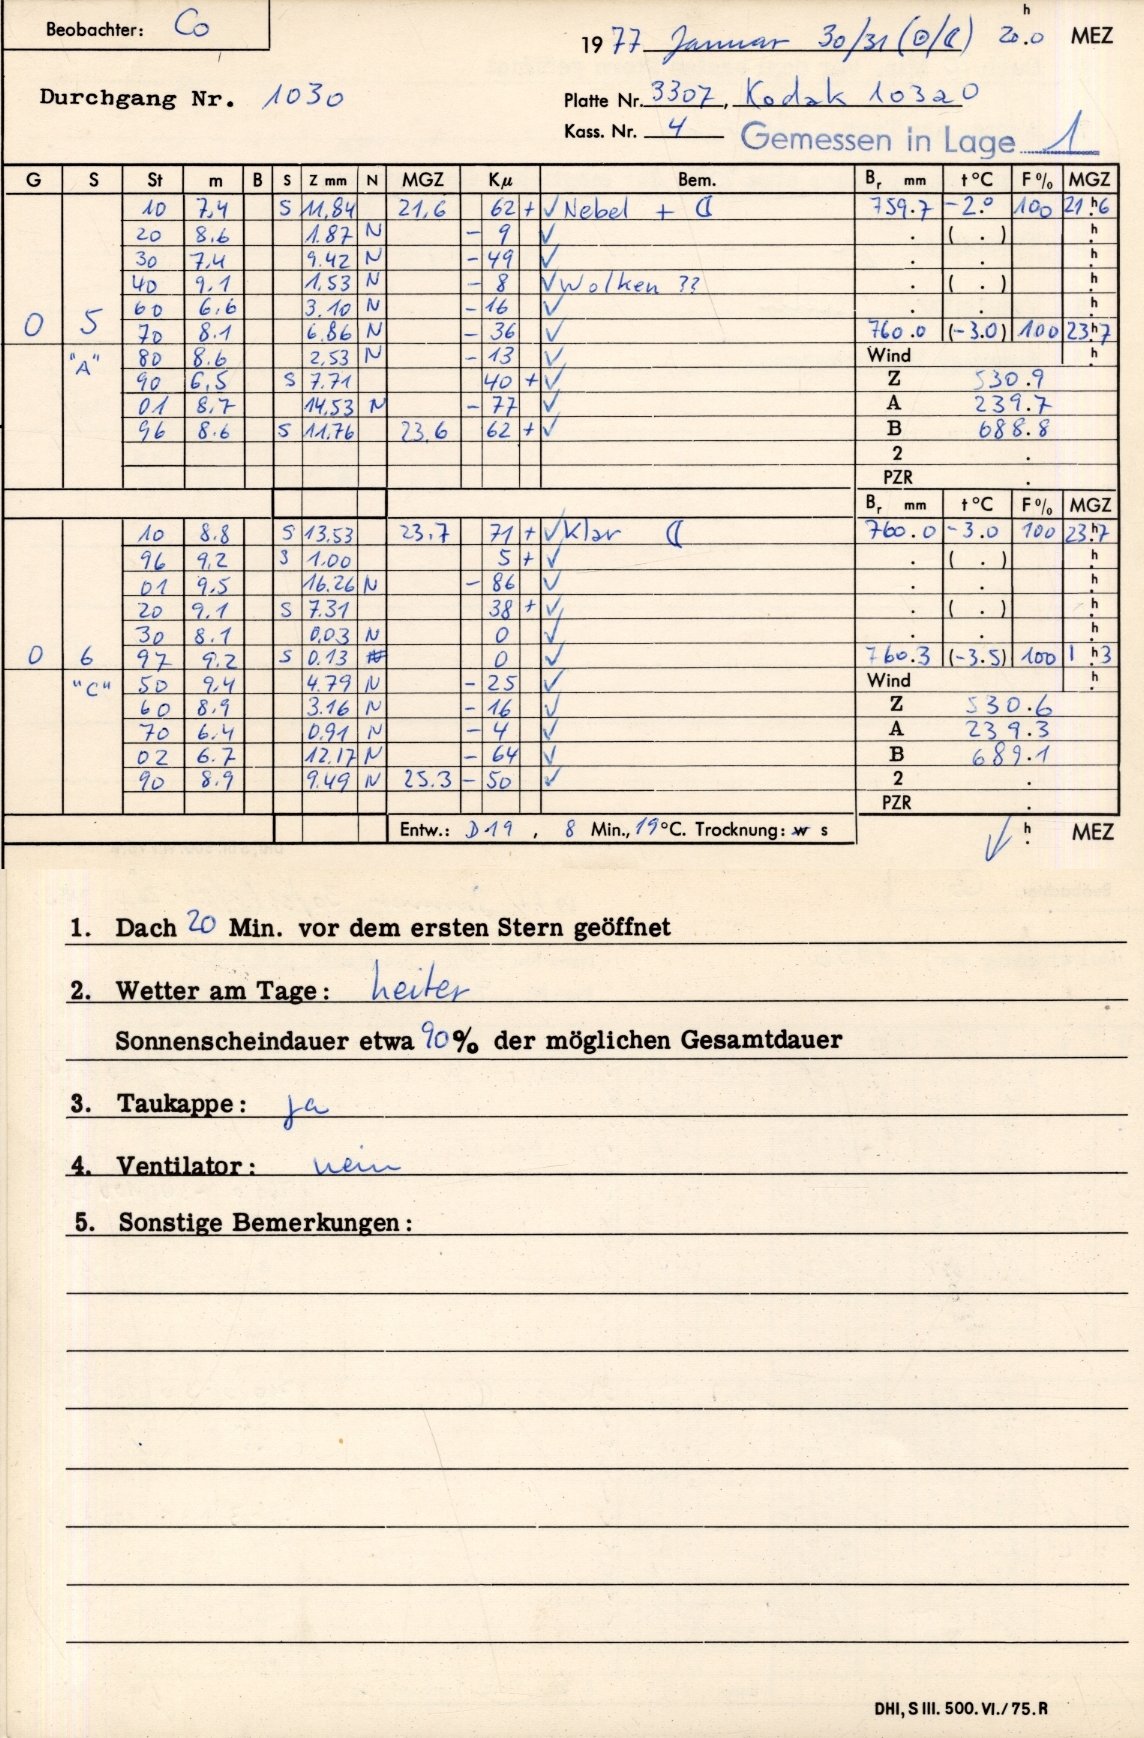 Beobachter: Co
1977 Januar 30/31 (⊙/☾) 20.ʰ0 MEZ
Durchgang Nr. 1030
Platte Nr. 3307, Kodak 103aO
Kass. Nr. 4
Gemessen in Lage 1
G S St m B S Z mm N MGZ Kμ Bem. Bᵣ mm t °C F % MGZ
10 7,4 S 11,84 21,6 62 + ✓ Nebel + ☾ 759.7 -2.0 100 21.ʰ6
20 8.6 1.87 N - 9 ✓ . ( . ) ʰ.
30 7,4 9.42 N - 49 ✓ . . ʰ.
40 9.1 1,53 N - 8 ✓ Wolken ?? . ( . ) ʰ.
60 6,6 3.10 N - 16 ✓ . . ʰ.
0 5 70 8.1 6,86 N - 36 ✓ 760.0 (-3.0) 100 23.ʰ7
"A" 80 8.6 2,53 N - 13 ✓ Wind ʰ.
90 6,5 S 7.71 40 + ✓ Z 530.9
01 8,7 14,53 N - 77 ✓ A 239.7
96 8.6 S 11,76 23,6 62 + ✓ B 688.8
2 .
PZR .
Bᵣ mm t °C F % MGZ
10 8.8 S 13,53 23,7 71 + ✓ Klar ☾ 760.0 -3.0 100 23.ʰ7
96 9,2 S 1.00 5 + ✓ . ( . ) ʰ.
01 9,5 16.26 N - 86 ✓ . . ʰ.
20 9.1 S 7.31 38 + ✓ . ( . ) ʰ.
30 8.1 0,03 N 0 ✓ . . ʰ.
0 6 97 9.2 S 0.13 0 ✓ 760.3 (-3.5) 100 1.ʰ3
"C" 50 9,4 4.79 N - 25 ✓ Wind ʰ.
60 8,9 3.16 N - 16 ✓ Z 530.6
70 6,4 0,91 N - 4 ✓ A 239.3
02 6.7 12,17 N - 64 ✓ B 689.1
90 8.9 9.49 N 25.3 - 50 ✓ 2 .
PZR .
Entw.: D19, 8 Min., 19°C. Trocknung: w s ✓ ʰ. MEZ
1. Dach 20 Min. vor dem ersten Stern geöffnet
2. Wetter am Tage: heiter
Sonnenscheindauer etwa 90% der möglichen Gesamtdauer
3. Taukappe: ja
4. Ventilator: nein
5. Sonstige Bemerkungen:
DHI, S III. 500. VI./75. R